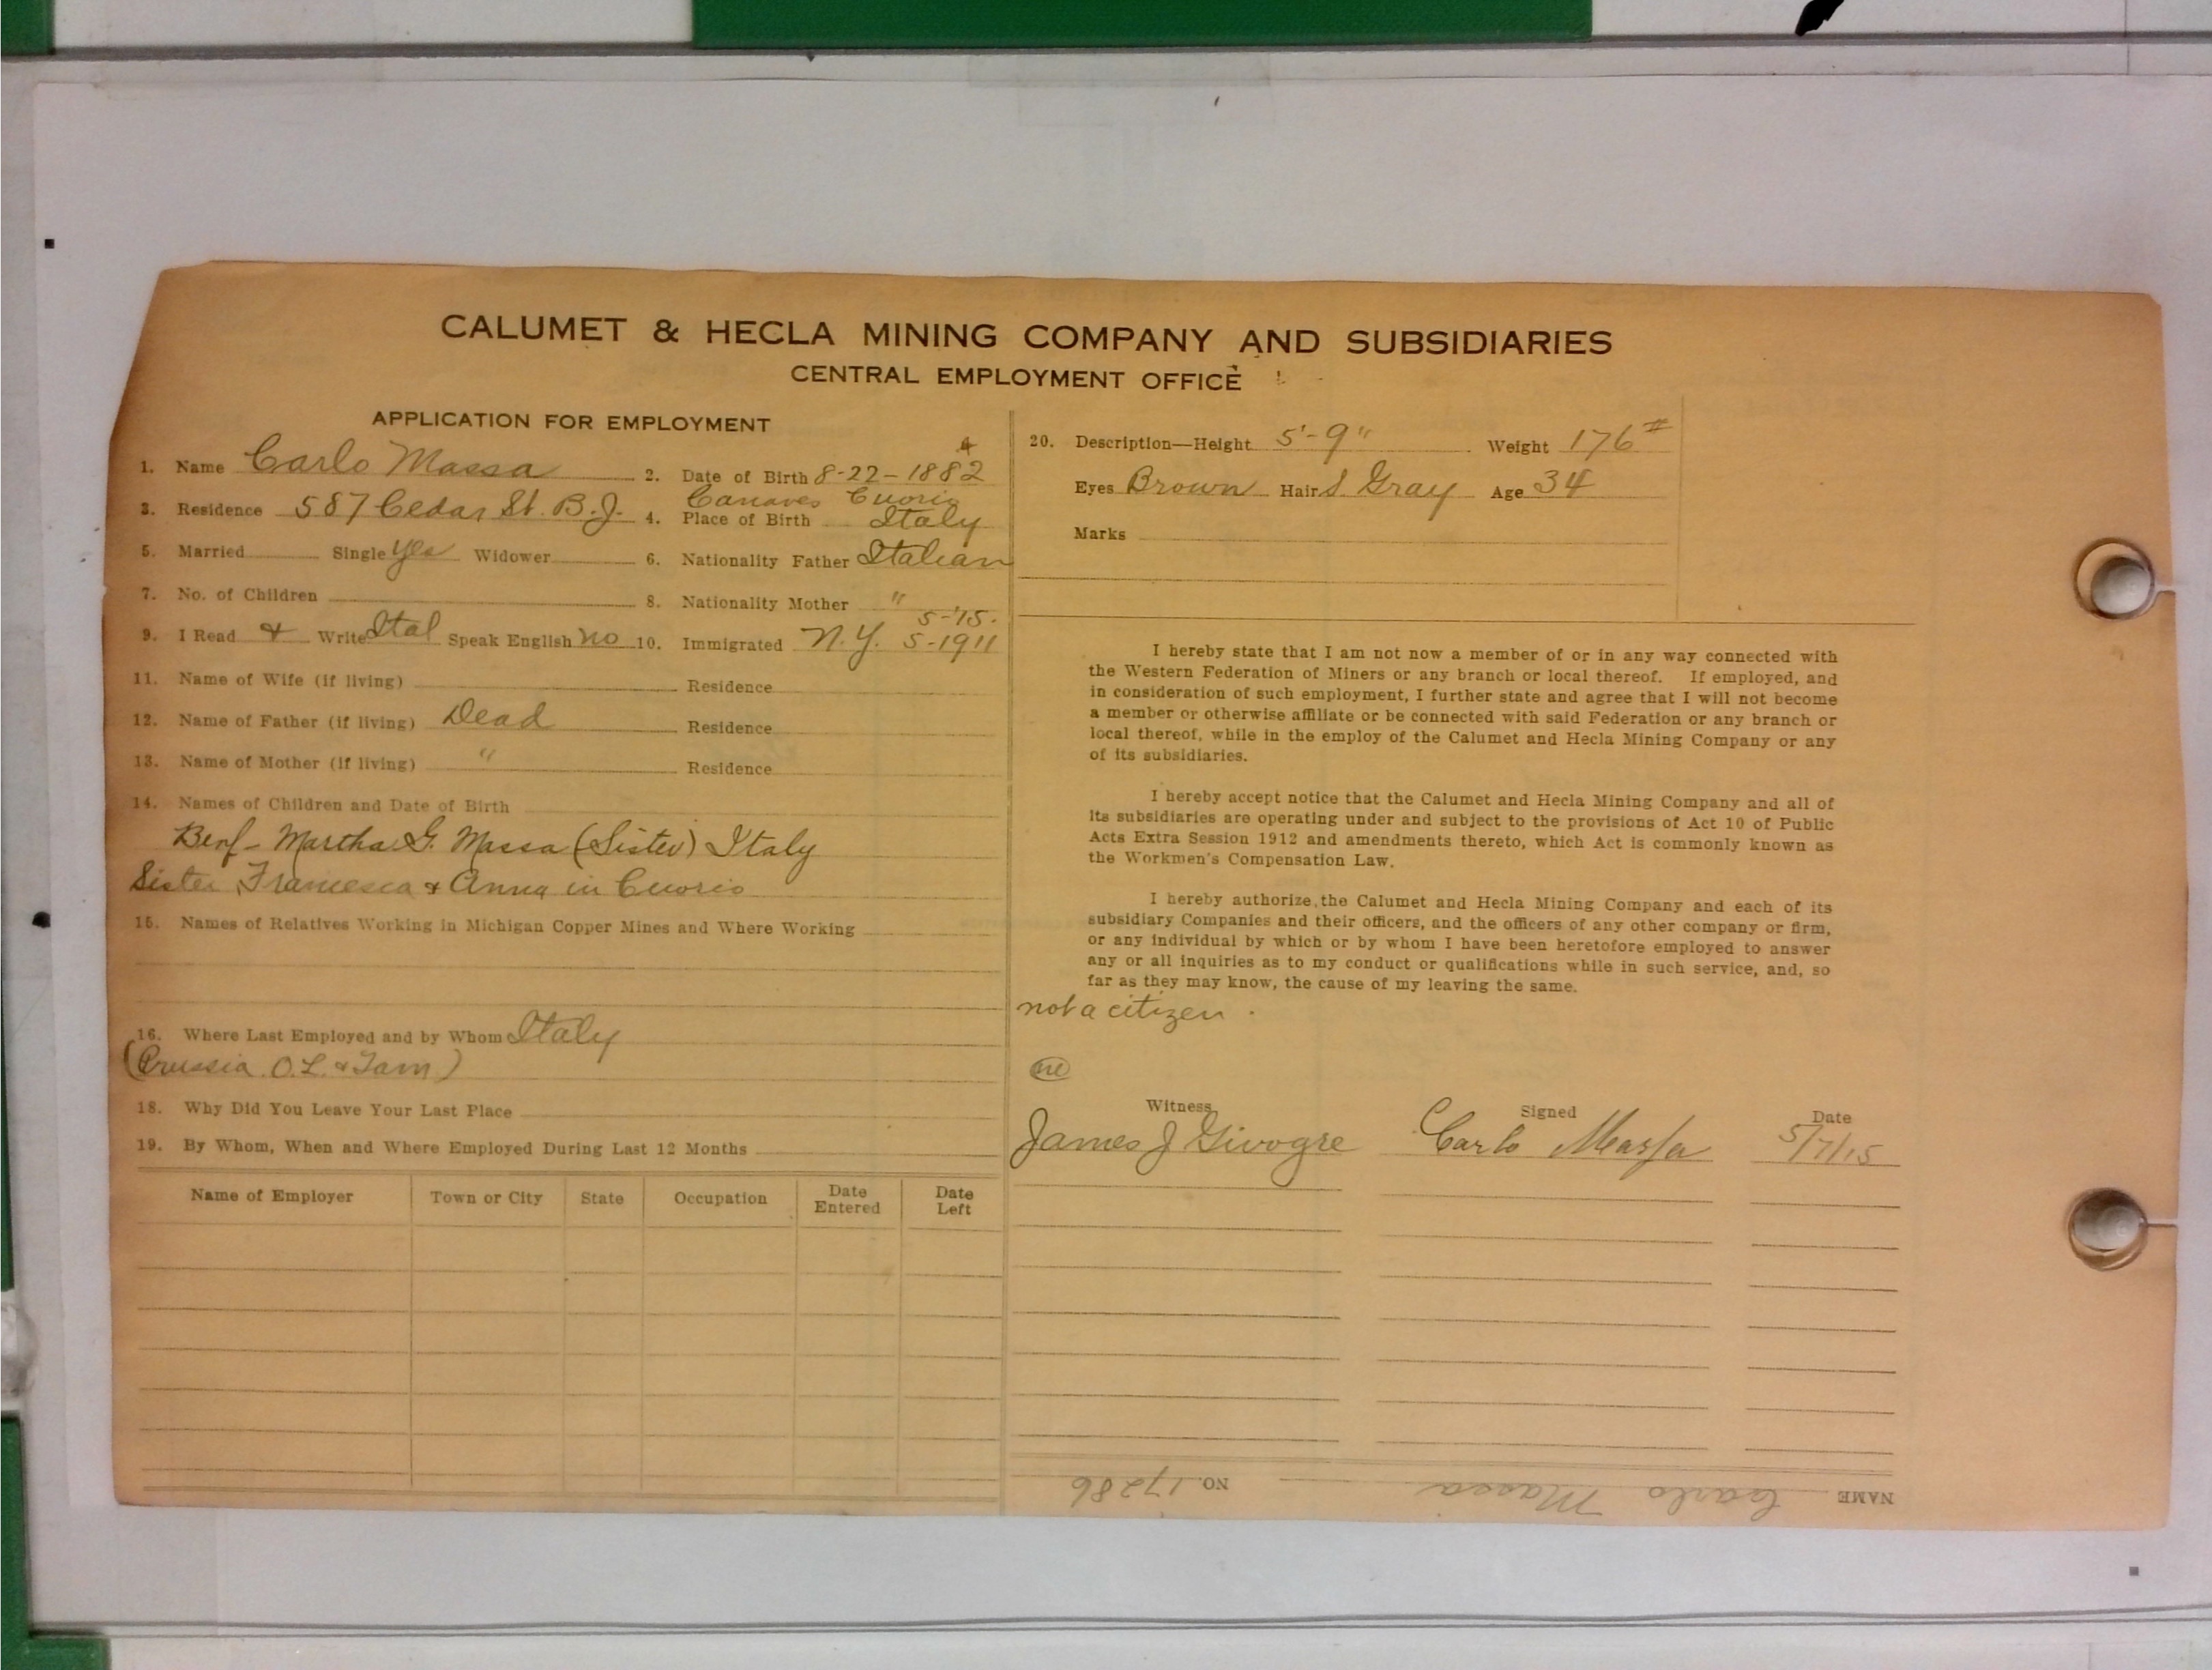 CALUMET & HECLA MINING COMPANY AND SUBSIDIARIES
CENTRAL EMPLOYMENT OFFICE
APPLICATION FOR EMPLOYMENT
1. Name Carlo Massa 2. Date of Birth 8-22-1882 4
3. Residence 587 Cedar St. B.J. 4. Place of Birth Canaves Cuorio Italy
5. Married Single Yes Widower 6. Nationality Father Italian
7. No. of Children 8. Nationality Mother "
9. I Read & Write Ital Speak English no 10. Immigrated N.Y. 5-1911 5-'15.
11. Name of Wife (if living) Residence
12. Name of Father (if living) Dead Residence
13. Name of Mother (if living) " Residence
14. Names of Children and Date of Birth
Benf- Martha G. Massa (Sister) Italy
Sister Francesca & Anna in Cuorio
15. Names of Relatives Working in Michigan Copper Mines and Where Working
16. Where Last Employed and by Whom Italy
(Prussia. O.L. & Tam)
18. Why Did You Leave Your Last Place
19. By Whom, When and Where Employed During Last 12 Months
Name of Employer Town or City State Occupation Date Entered Date Left
20. Description—Height 5'-9" Weight 176#
Eyes Brown Hair S. Gray Age 34
Marks
I hereby state that I am not now a member of or in any way connected with
the Western Federation of Miners or any branch or local thereof. If employed, and
in consideration of such employment, I further state and agree that I will not become
a member or otherwise affiliate or be connected with said Federation or any branch or
local thereof, while in the employ of the Calumet and Hecla Mining Company or any
of its subsidiaries.
I hereby accept notice that the Calumet and Hecla Mining Company and all of
its subsidiaries are operating under and subject to the provisions of Act 10 of Public
Acts Extra Session 1912 and amendments thereto, which Act is commonly known as
the Workmen's Compensation Law.
I hereby authorize the Calumet and Hecla Mining Company and each of its
subsidiary Companies and their officers, and the officers of any other company or firm,
or any individual by which or by whom I have been heretofore employed to answer
any or all inquiries as to my conduct or qualifications while in such service, and, so
far as they may know, the cause of my leaving the same.
not a citizen.
Witness Signed Date
James J Givogre Carlo Massa 5/7/15
NAME Carlo Massa NO. 17286